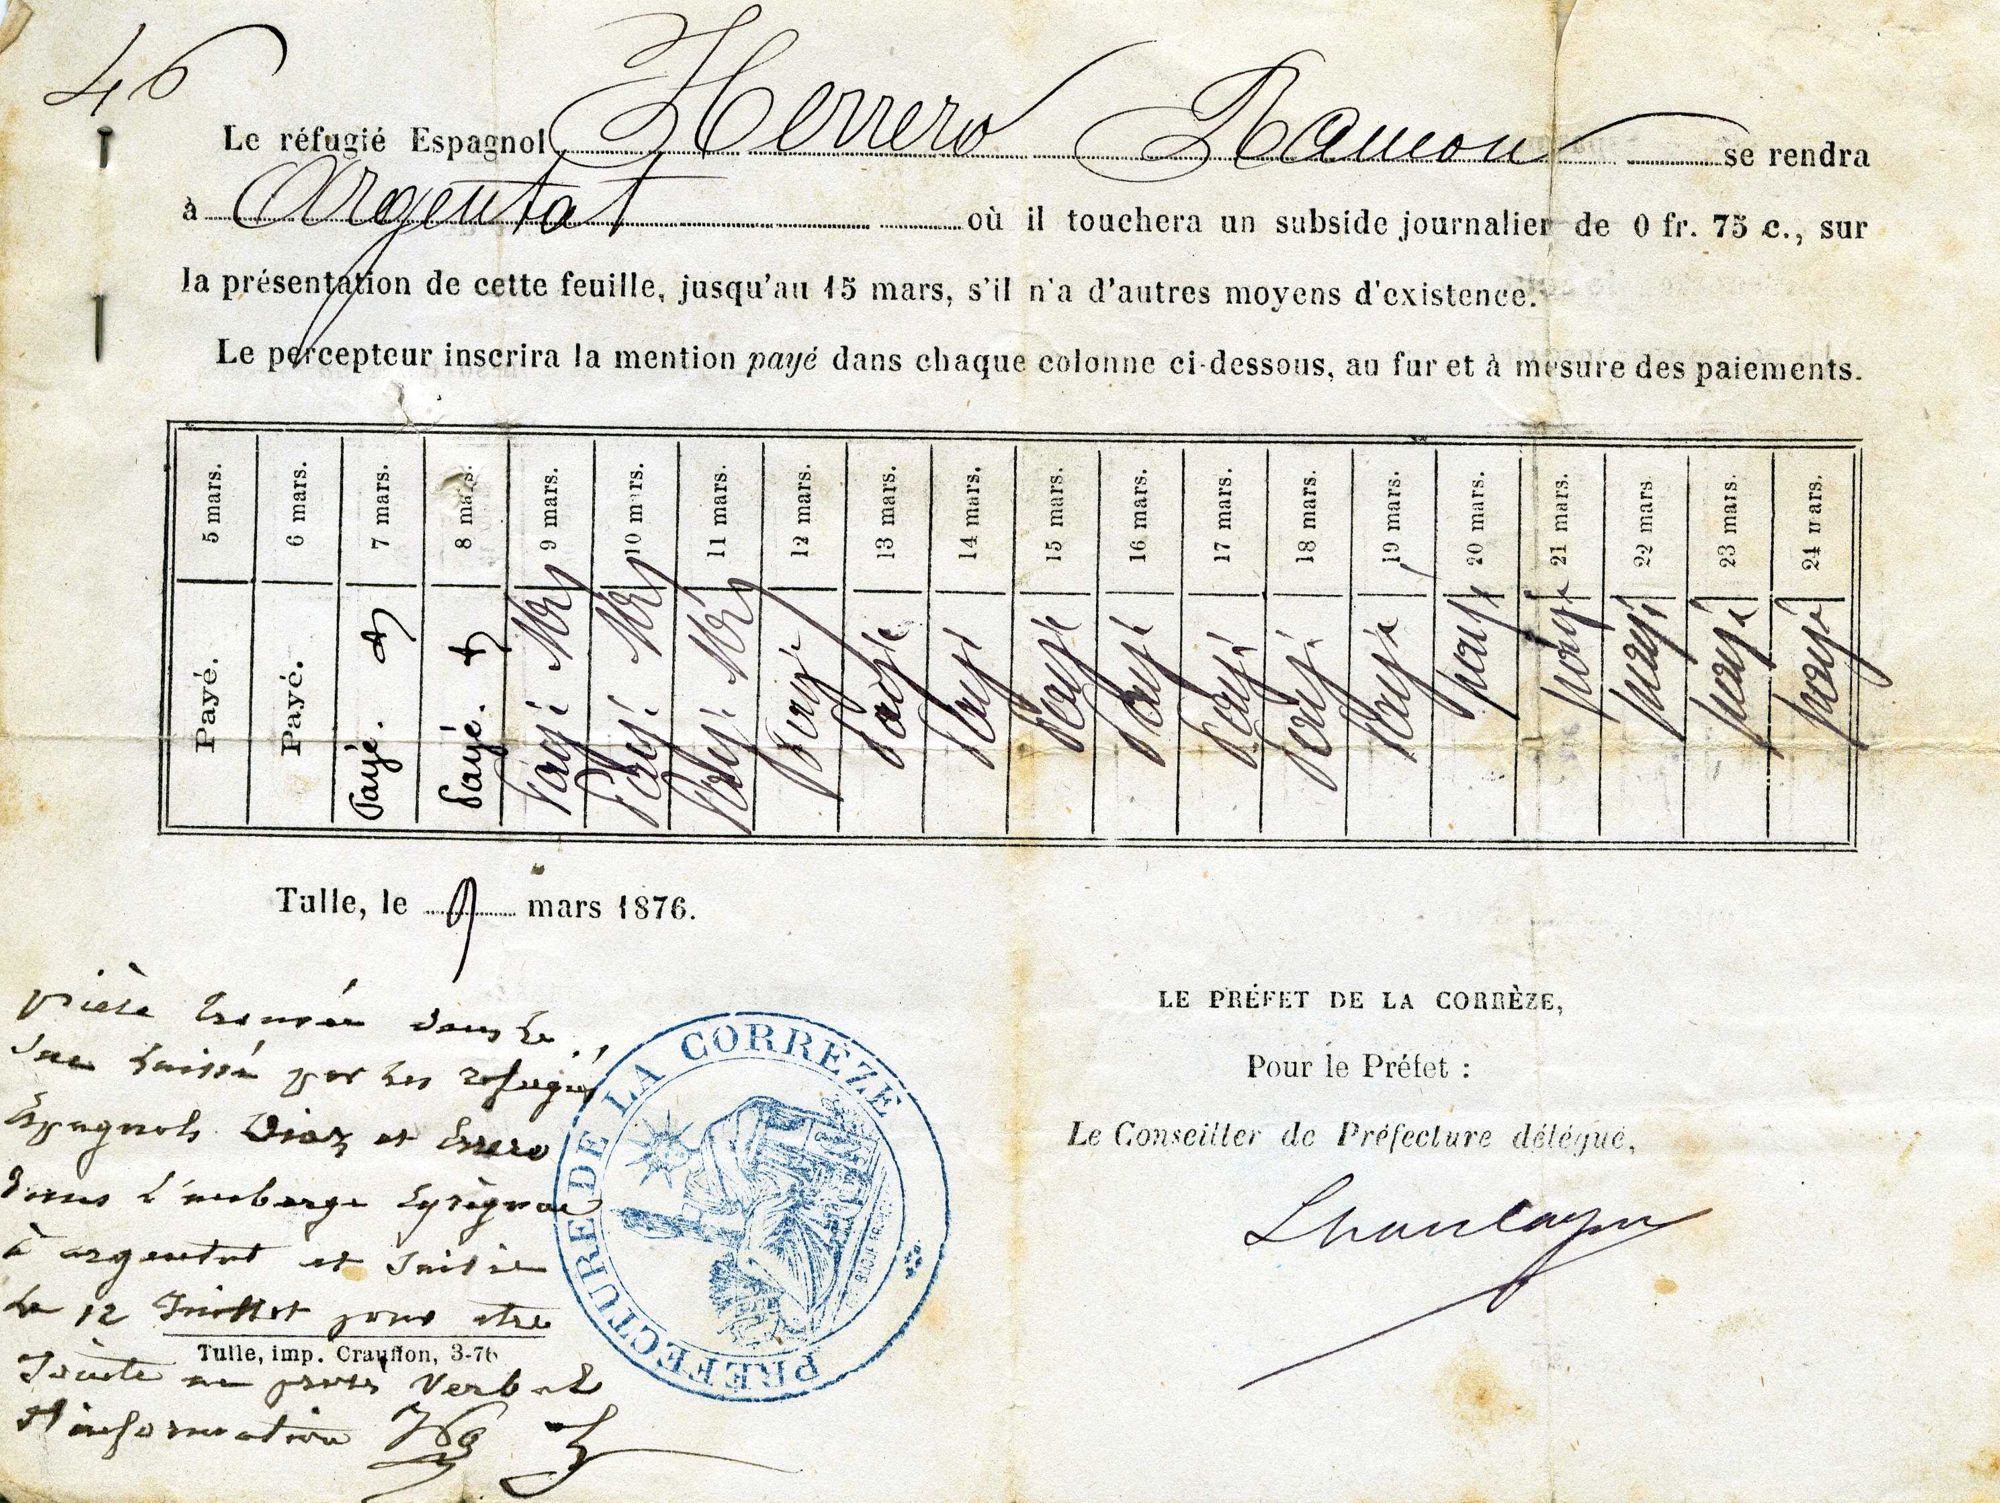 46
Le réfugié Espagnol Herrero Ramon se rendra
à Argentat où il touchera un subside journalier de 0 fr. 75 c., sur
la présentation de cette feuille, jusqu'au 15 mars, s'il n'a d'autres moyens d'existence.
Le percepteur inscrira la mention payé dans chaque colonne ci-dessous, au fur et à mesure des paiements.
5 mars. Payé.
6 mars. Payé.
7 mars. Payé.
8 mars. Payé.
9 mars. Payé
10 mars. Payé
11 mars. Payé
12 mars. Payé
13 mars. Payé
14 mars. Payé
15 mars. Payé
16 mars. Payé
17 mars. Payé
18 mars. Payé
19 mars. Payé
20 mars. payé
21 mars. payé
22 mars. payé
23 mars. payé
24 mars. payé
Tulle, le 9 mars 1876.
LE PRÉFET DE LA CORRÈZE,
Pour le Préfet :
Le Conseiller de Préfecture délégué,
PREFECTURE DE LA CORREZE
pièce trouvée dans le
sac laissé par les refugiés
Espagnols Diaz et Errero
dans l'auberge Eyrignac
à argentat et saisie
le 12 Juillet pour etre
Tulle, imp. Crauffon, 3-76
Jointe au procès verbal
d'information